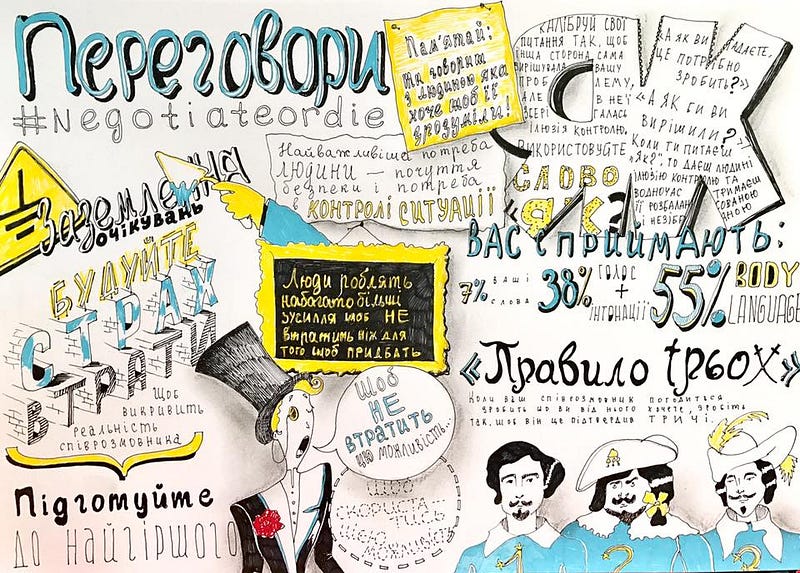 Переговори
#Negotiateordie
Пам'ятай:
Ти говориш
з людиною яка
хоче щоб її
зрозуміли!
КАЛІБРУЙ СВОЇ
ПИТАННЯ ТАК, ЩОБ
ІНША СТОРОНА САМА
ВИРІШУВАЛА ВАШУ
ПРОБЛЕМУ,
АЛЕ В НЕЇ
ЗБЕРІГАЛАСЬ
ІЛЮЗІЯ КОНТРОЛЮ,
ВИКОРИСТОВУЙТЕ
СЛОВО
«ЯК?»
«А ЯК ВИ ГАДАЄТЕ,
ЦЕ ПОТРІБНО
ЗРОБИТЬ?»
«А ЯК БИ ВИ
ВИРІШИЛИ?»
КОЛИ ТИ ПИТАЄШ
«ЯК?», ТО ДАЄШ ЛЮДИНІ
ІЛЮЗІЮ КОНТРОЛЮ ТА
ВОДНОЧАС ТРИМАЄШ
ЇЇ
Найважливіша потреба
людини — почуття
безпеки і потреба
в КОНТРОЛІ СИТУАЦІЇ
Заземлення
очікувань
БУДУЙТЕ
СТРАХ
ВТРАТИ
Щоб
викривить
реальність
співрозмовника
Люди роблять
набагато більші
зусилля щоб НЕ
втратить ніж для
того щоб придбать
ВАС СПРИЙМАЮТЬ:
7% ваші слова
38% голос + інтонації
55% BODY LANGUAGE
«Правило трьох»
Коли ваш співрозмовник погодиться
зробить що ви від нього хочете, зробіть
так, щоб він це підтвердив тричі.
Щоб
НЕ
втратить
цю можливість...
Щоб
скориста-
тись
цією
можливістю
Підготуйте
до найгіршого
1 2 3